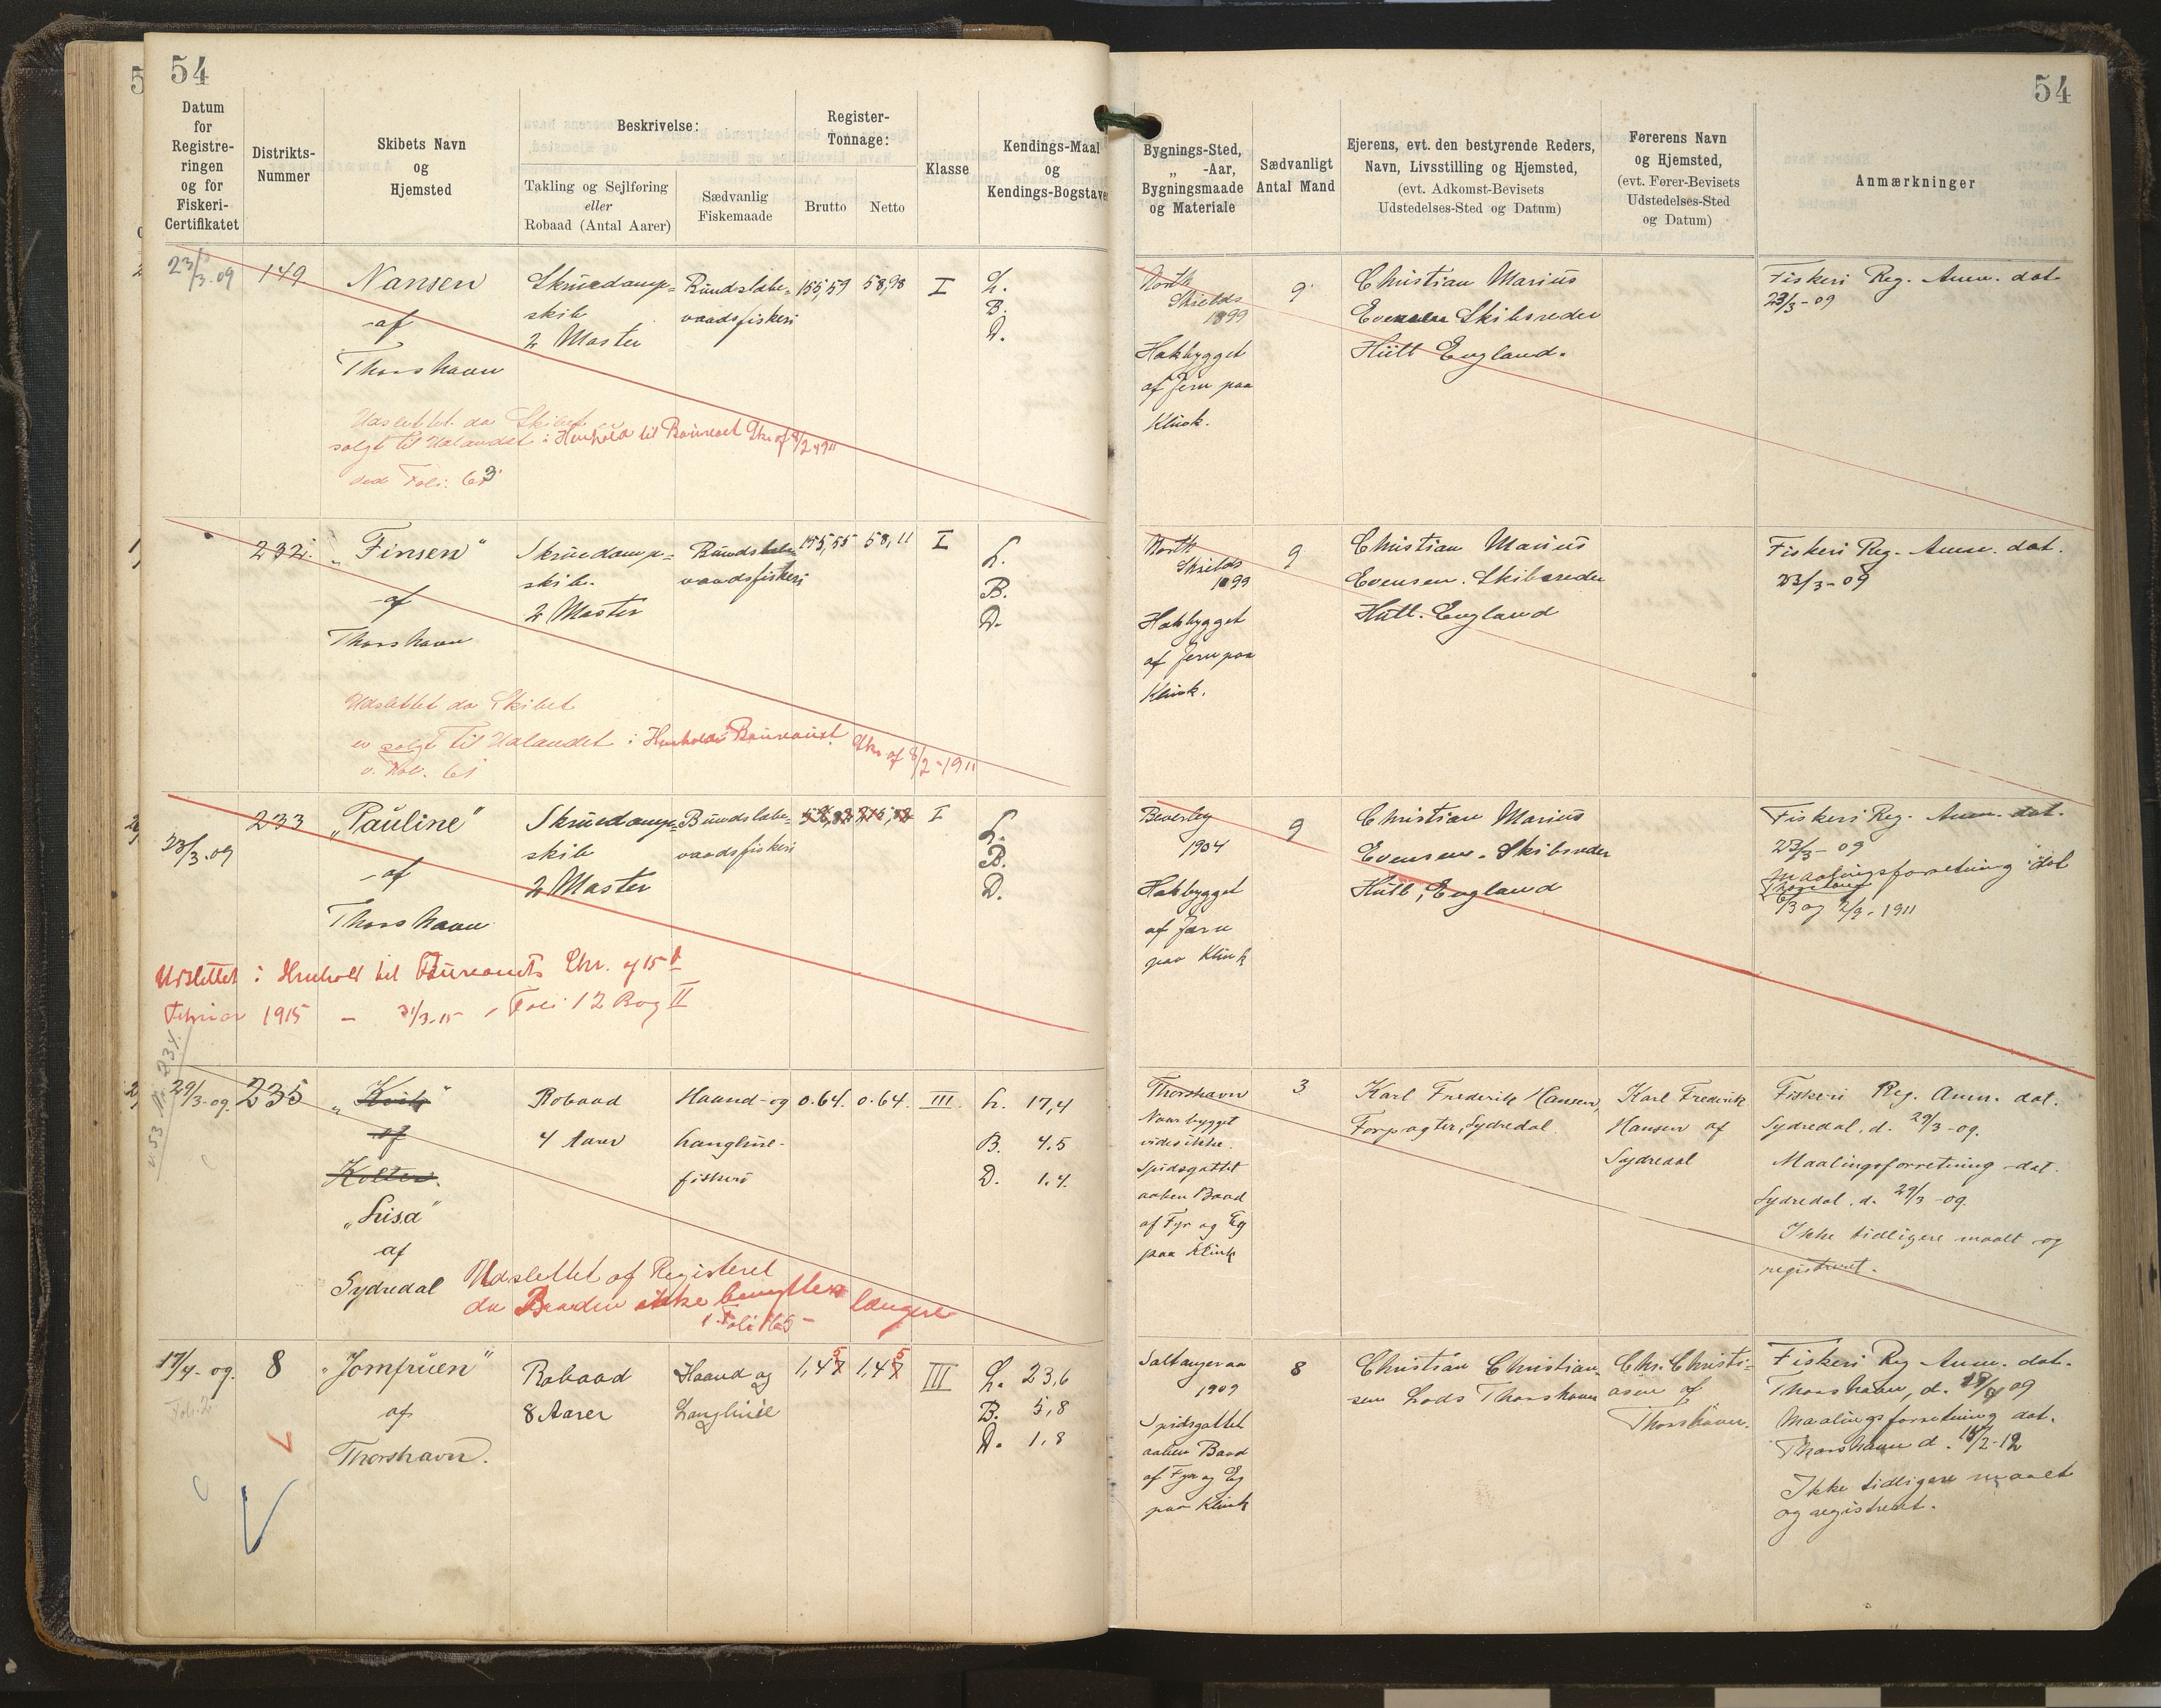 54
Datum
for
Registre-
ringen
og for
Fiskeri-
Certifikatet
Distrikts-
Nummer
Skibets Navn
og
Hjemsted
Beskrivelse:
Takling og Sejlføring
eller
Robaad (Antal Aarer)
Sædvanlig
Fiskemaade
Register-
Tonnage:
Brutto
Netto
Klasse
Kendings-Maal
og
Kendings-Bogstaver
23/3-09
149
Nansen
af
Thorshavn
Skruedamp=
skib
2 Master
Bundslæbe=
vaadsfiskeri
155,59
58,98
I
L.
B.
D.
Udslettet da Skibet
solgt til Udlandet i Henhold til Bureauet Skr. af 8/2 1911
Folio 63
232.
„Finsen“
af
Thorshavn
Skruedamp=
skib.
2 Master
Bundslæbe
vaadsfiskeri
155,55
58,11
I
L.
B.
D.
Udslettet da Skibet
er solgt til Udlandet i Henhold Bureauet Skr. af 8/2-1911
v. Fol. 61
23/3-09
233
„Pauline“
af
Thorshavn
Skruedamp=
skib
2 Master
Bundslæbe=
vaadsfiskeri
I
L.
B.
D.
Udslettet i Henhold til Bureauets Skr. af 15d
Februar 1915 — 31/3-15 Foli 12 Bog II
29/3-09.
235
„Kvik“
af
Kolter.
„Lisa“
af
Sydredal
Robaad
4 Aarer
Haand- og
Langline-
fiskeri
0.64.
0.64.
III.
L. 17,4
B. 4.5
D. 1.4.
v 53 Nr. 234.
Udslettet af Registeret
da Baaden ikke benyttes længere
Foli 165
17/4-09.
8
„Jomfruen“
af
Thorshavn.
Robaad
8 Aarer
Haand og
Langline
1,47 5
1,47 5
III
L. 23,6
B. 5,8
D. 1,8
54
Bygnings-Sted,
„ -Aar,
Bygningsmaade
og Materiale
Sædvanligt
Antal Mand
Ejerens, evt. den bestyrende Reders,
Navn, Livsstilling og Hjemsted,
(evt. Adkomst-Bevisets
Udstedelses-Sted og Datum)
Førerens Navn
og Hjemsted,
(evt. Fører-Bevisets
Udstedelses-Sted
og Datum)
Anmærkninger
North
Shields
1899
Hakbygget
af Jern paa
Klink.
9
Christian Marius
Evensen Skibsreder
Hull England.
Fiskeri Reg. Anm. dat.
23/3-09
North
Shields
1899
Hakbygget
af Jern paa
Klink.
9
Christian Marius
Evensen. Skibsreder
Hull. England
Fiskeri Reg. Anm. dat.
23/3-09
Beverley
1904
Hakbygget
af Jern
paa Klink
9
Christian Marius
Evensen. Skibsreder
Hull, England
Fiskeri Reg. Anm. dat.
23/3-09
Maalingsforretning dat
Thorshavn
6/3 og 2/3-1911
Thorshavn
Naar bygget
vides ikke
Spidsgattet
aaben Baad
af Fyr og Eg
paa Klink
3
Karl Frederik Hansen,
Forpagter, Sydredal.
Karl Frederik
Hansen af
Sydredal
Fiskeri Reg. Anm. dat.
Sydredal. d. 29/3-09.
Maalingsforretning dat.
Sydredal. d. 29/3-09.
Ikke tidligere maalt og
registreret.
Saltangeraa
1909
Spidsgattet
aaben Baad
af Fyr og Eg
paa Klink
8
Christian Christian-
sen Lods Thorshavn
Chr. Christi-
ansen af
Thorshavn.
Fiskeri Reg Anm. dat.
Thorshavn, d. 09
Maalingsforretning dat.
Thorshavn d. 15/2-12
Ikke tidligere maalt
og registreret.